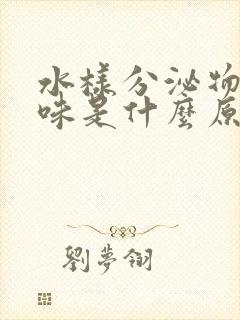 水樣分泌物
味是什麼原
劉夢翎